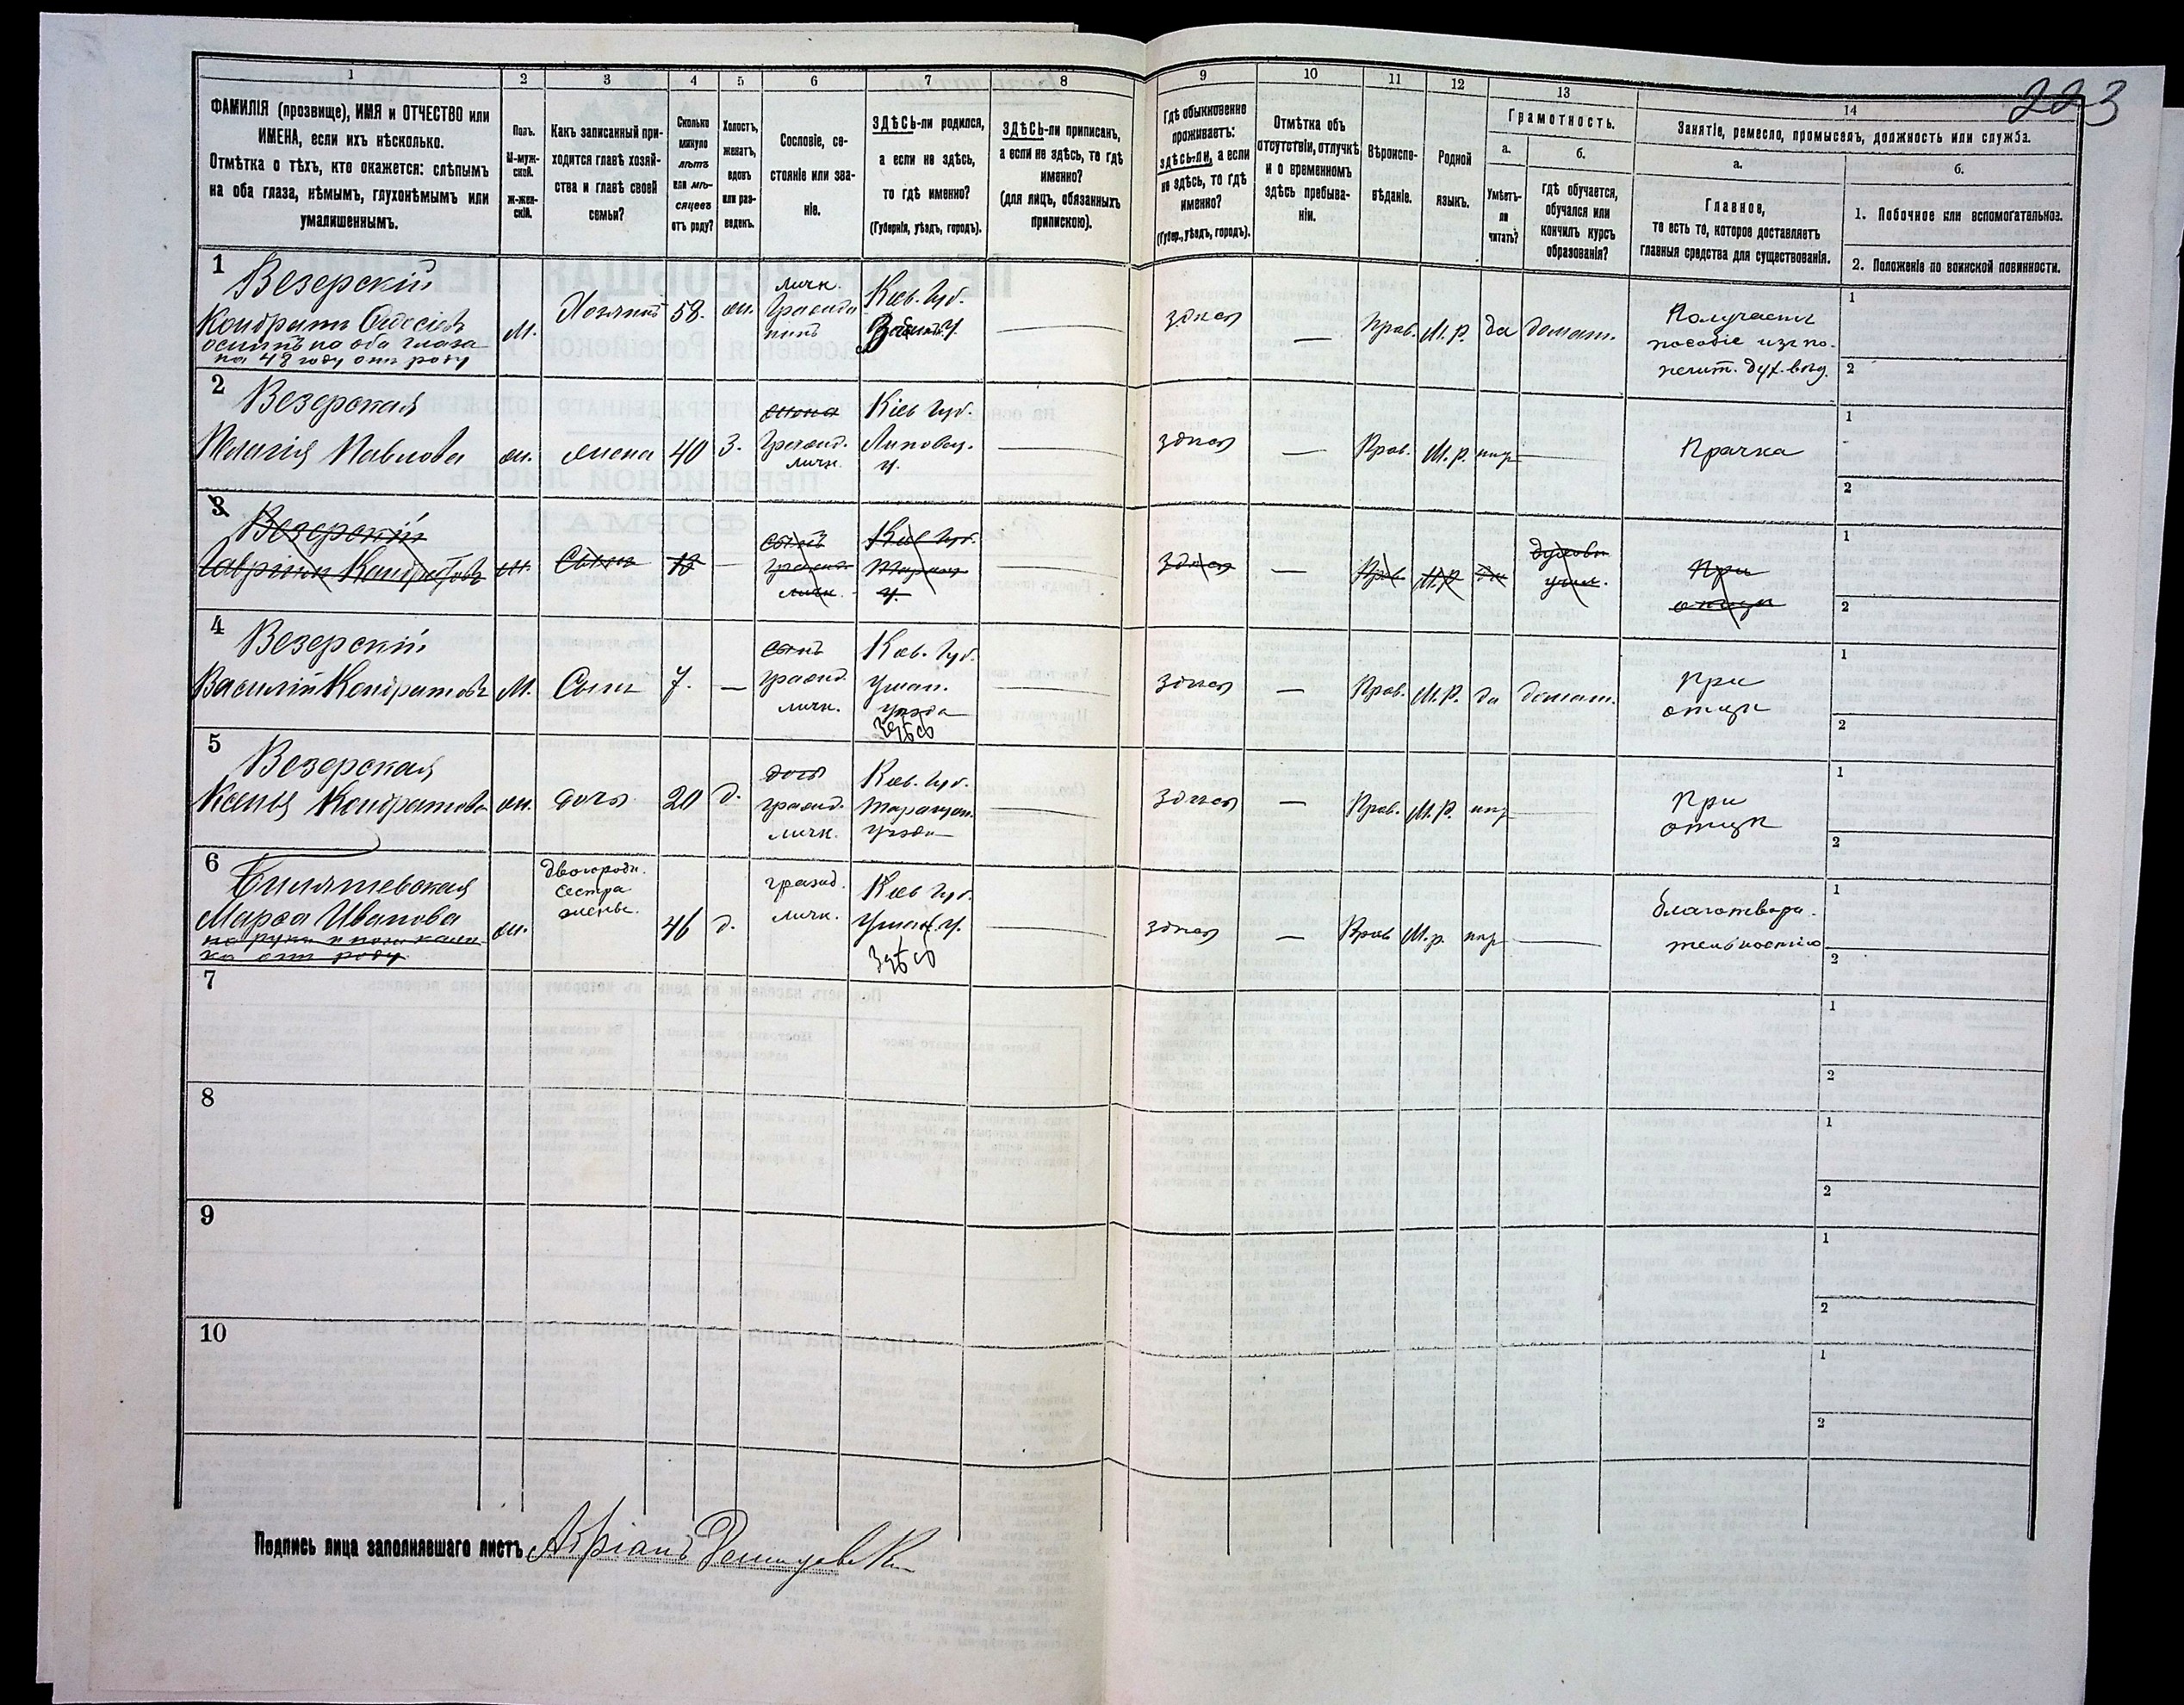 223
1
2
3
4
5
6
7
8
9
10
11
12
13
14
ФАМИЛІЯ (прозвище), ИМЯ и ОТЧЕСТВО или
ИМЕНА, если ихъ нѣсколько.
Отмѣтка о тѣхъ, кто окажется: слѣпымъ
на оба глаза, нѣмымъ, глухонѣмымъ или
умалишеннымъ.
Полъ.
М-муж-
ской.
Ж-жен-
скій.
Какъ записанный при-
ходится главѣ хозяй-
ства и главѣ своей
семьи?
Сколько
минуло
лѣтъ
или мѣ-
сяцевъ
отъ роду?
Холостъ,
женатъ,
вдовъ
или раз-
веденъ.
Сословіе, со-
стояніе или зва-
ніе.
ЗДѢСЬ-ли родился,
а если не здѣсь,
то гдѣ именно?
(Губернія, уѣздъ, городъ).
ЗДѢСЬ-ли приписанъ,
а если не здѣсь, то гдѣ
именно?
(для лицъ, обязанныхъ
припискою).
Гдѣ обыкновенно
проживаетъ:
здѣсь-ли, а если
не здѣсь, то гдѣ
именно?
(Губер., уѣздъ, городъ).
Отмѣтка объ
отсутствіи, отлучкѣ
и о временномъ
здѣсь пребыва-
ніи.
Вѣроиспо-
вѣданіе.
Родной
языкъ.
Грамотность.
а.
Умѣетъ-
ли
читать?
б.
гдѣ обучается,
обучался или
кончилъ курсъ
образованія?
Занятіе, ремесло, промыселъ, должность или служба.
а.
Главное,
то есть то, которое доставляетъ
главныя средства для существованія.
б.
1. Побочное или вспомогательное.
2. Положеніе по воинской повинности.
1
Везерскій
Кондратъ Ѳедосіевъ
ослѣпъ на оба глаза
на 48 году отъ роду
М.
Хозяинъ
58.
ж.
личн.
Гражда
нинъ
Кіев. Губ.
здѣсь
—
Прав.
М.Р.
да
домаш.
Получаетъ
пособіе изъ по-
печит. дух. вѣд.
1
2
2
Везерская
Пелагія Павлова
ж.
жена
40
З.
Гражд.
личн.
Кіев Губ.
Липовец.
у.
здѣсь
—
Прав.
М.Р.
нѣт
Прачка
1
2
3
Везерскій
Гавріилъ Кондратовъ
М.
Сынъ
13
—
сынъ
гражд.
личн.
Кіев Губ.
Таращ.
у.
здѣсь
—
Прав
М.Р
да
духовн
учил.
При
отцѣ
1
2
4
Везерскій
Василій Кондратовъ
М.
Сынъ
7.
—
сынъ
гражд.
личн.
Кіев. Губ.
Уман.
уѣзда
здѣсь
здѣсь
—
Прав.
М.Р.
да
домаш.
При
отцѣ
1
2
5
Везерская
Ксенья Кондратова
ж.
дочь
20
д.
дочь
гражд.
личн.
Кіев. Губ.
Таращан.
уѣзда
здѣсь
—
Прав.
М.Р.
нѣт
При
отцѣ
1
2
6
Марѳа Иванова
на руки и ноги калѣ-
ка отъ роду
ж.
двоюродн.
сестра
жены.
46
д.
гражд.
личн.
Кіев Губ.
Уман. у.
здѣсь
здѣсь
—
Прав
М.р.
нѣт
благотвори-
тельностію
1
2
7
1
2
8
1
2
9
1
2
10
1
2
Подпись лица заполнявшаго листъ